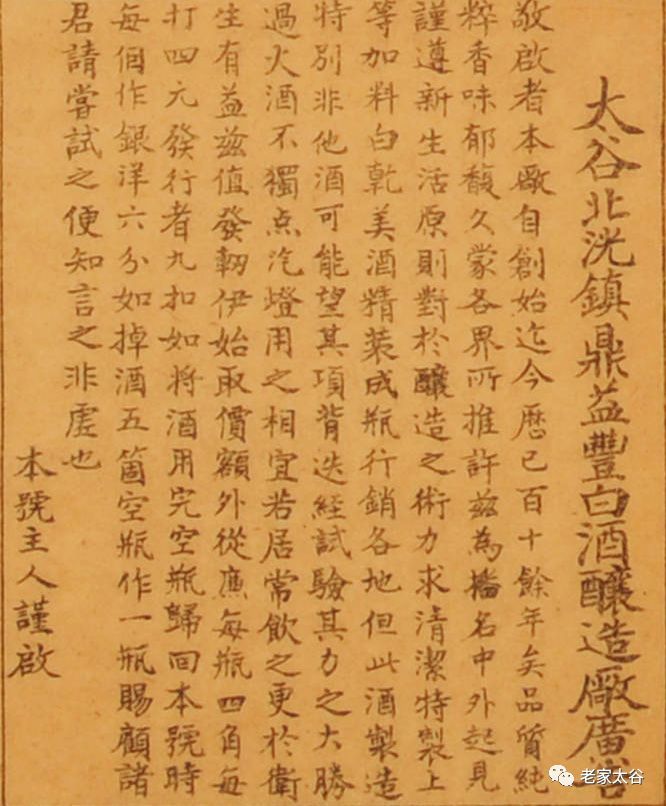 太谷北洸鎮鼎益豐白酒釀造廠廣告
敬啟者本廠自創始迄今歷已百十餘年矣品質純
粹香味郁馥久蒙各界所推許茲為播名中外起見
謹遵新生活原則對於釀造之術力求清潔特製上
等加料白乾美酒精裝成瓶行銷各地但此酒製造
特別非他酒可能望其項背迭經試驗其力之大勝
過火酒不獨点汽燈用之相宜若居常飲之更於衛
生有益茲值發軔伊始取價額外從廉每瓶四角每
打四元發行者九扣如將酒用完空瓶歸回本號時
每個作銀洋六分如掉酒五箇空瓶作一瓶賜顧諸
君請嘗試之便知言之非虛也
本號主人謹啟
老家太谷